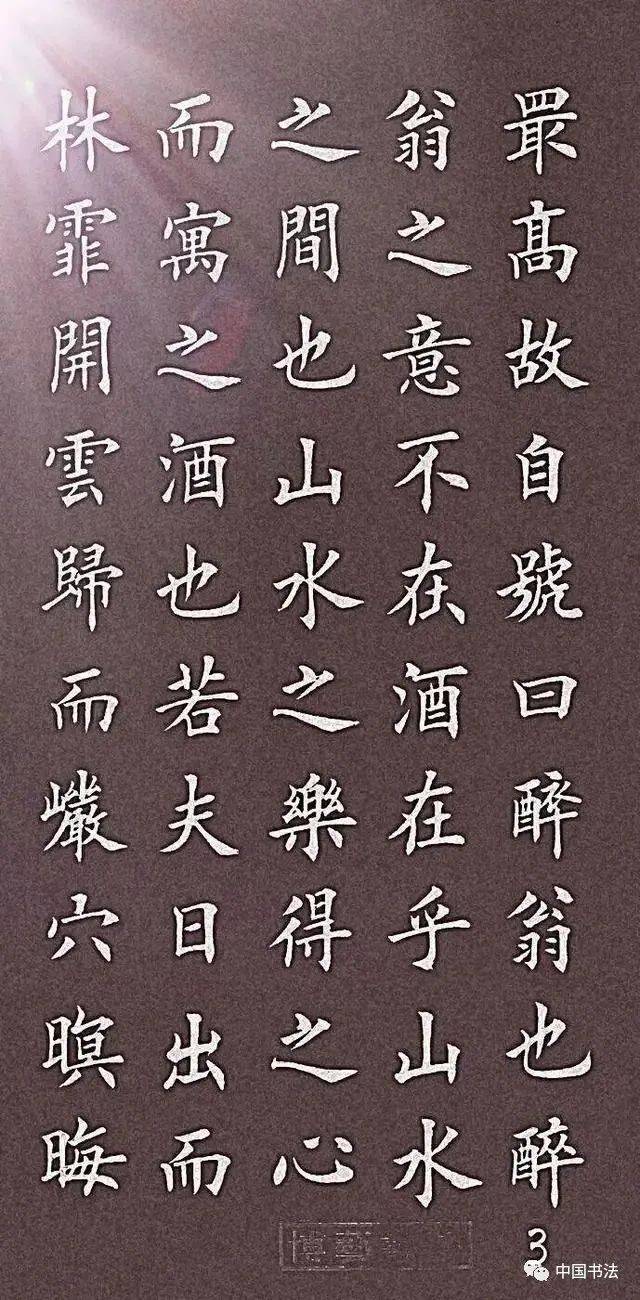 最高故自號曰醉翁也醉
翁之意不在酒在乎山水
之間也山水之樂得之心
而寓之酒也若夫日出而
林霏開雲歸而巖穴暝晦
博藝
3
中国书法